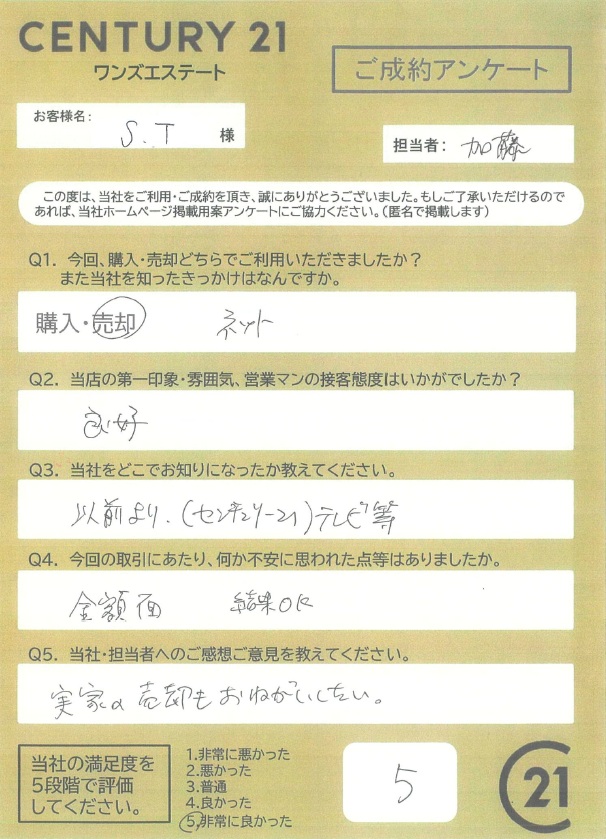 CENTURY 21
ワンズエステート
ご成約アンケート
お客様名：
S.T 様
担当者： 加藤
この度は、当社をご利用・ご成約を頂き、誠にありがとうございました。もしご了承いただけるので
あれば、当社ホームページ掲載用案アンケートにご協力ください。（匿名で掲載します）
Q1. 今回、購入・売却どちらでご利用いただきましたか？
また当社を知ったきっかけはなんですか。
購入・売却 ネット
Q2. 当店の第一印象・雰囲気、営業マンの接客態度はいかがでしたか？
良好
Q3. 当社をどこでお知りになったか教えてください。
以前より、（センチュリー21）テレビ等
Q4. 今回の取引にあたり、何か不安に思われた点等はありましたか。
金額面 結果OK
Q5. 当社・担当者へのご感想ご意見を教えてください。
実家の売却もおねがいしたい。
当社の満足度を
5段階で評価
してください。
1.非常に悪かった
2.悪かった
3.普通
4.良かった
5.非常に良かった
5
21